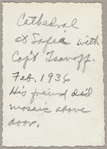 Cathedral
at Sofia with
Cap't Ivanoff.
Feb. 1936
His friend did
mosaic above
door.